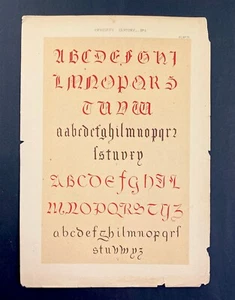 ABCDEFGHI
LMNOPQRS
TUVW
aabcdefghilmnopqrz
ſstuvxy
ABCDEfGHIL
MNOPQRSTZ
abcdefghilmnopqrſ
stuvwyz